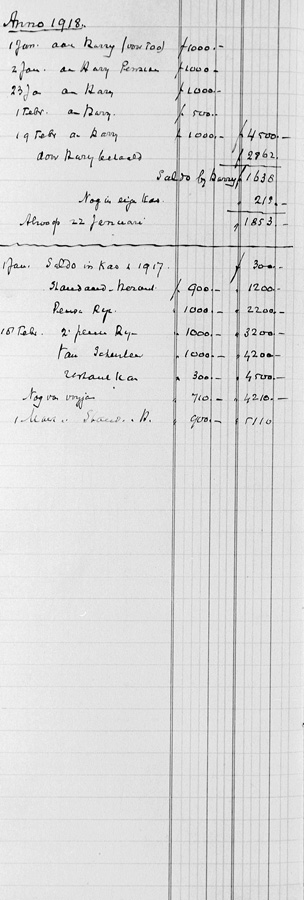 Anno 1918.
1 Jan. aan Harry (voor Too) ƒ 1000.-
2 Jan. an Harry Pensioen ƒ 1000.-
23 Ja an Harry ƒ 1000.-
1 Febr. an Harry. ƒ 500.-
19 Febr an Harry ƒ 1000.- ƒ 4500.-
door Harry betaald ƒ 2862.
Saldo by Harry ƒ 1638
Nog in eigen Kas. 219.-
22 Januari ƒ 1853.-
1 Jan. Saldo in Kas 1917. ƒ 300.-
Standaard 900.- 1200.-
Pensi Ryk 1000.- 2200.-
15 Febr. 2e pensi Ryk 1000.- 3200.-
van 1000.- 4200.-
Kas 300.- 4500.-
Nog van 710.- 4210.-
1 900.- 5110